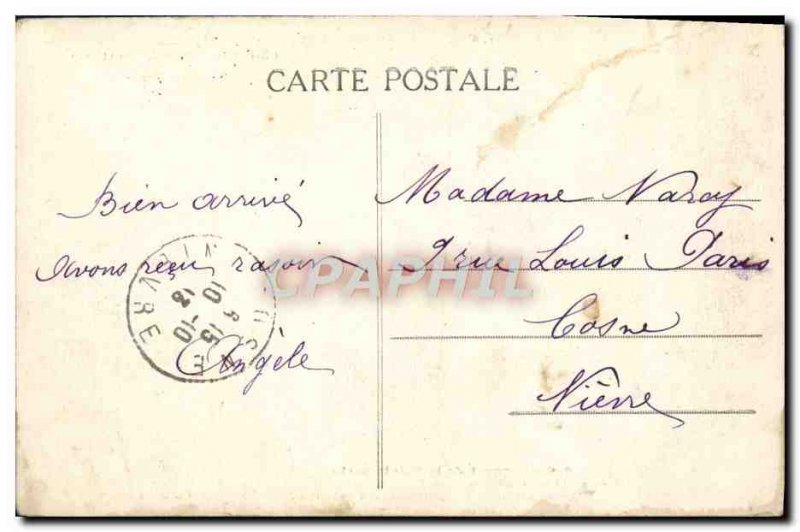 CARTE POSTALE
Bien arrivé
Avons reçu rasoir
Angèle
Madame Naroy
9 rue Louis Paris
Cosne
Nièvre
CPAPHIL
10 15
12 -10